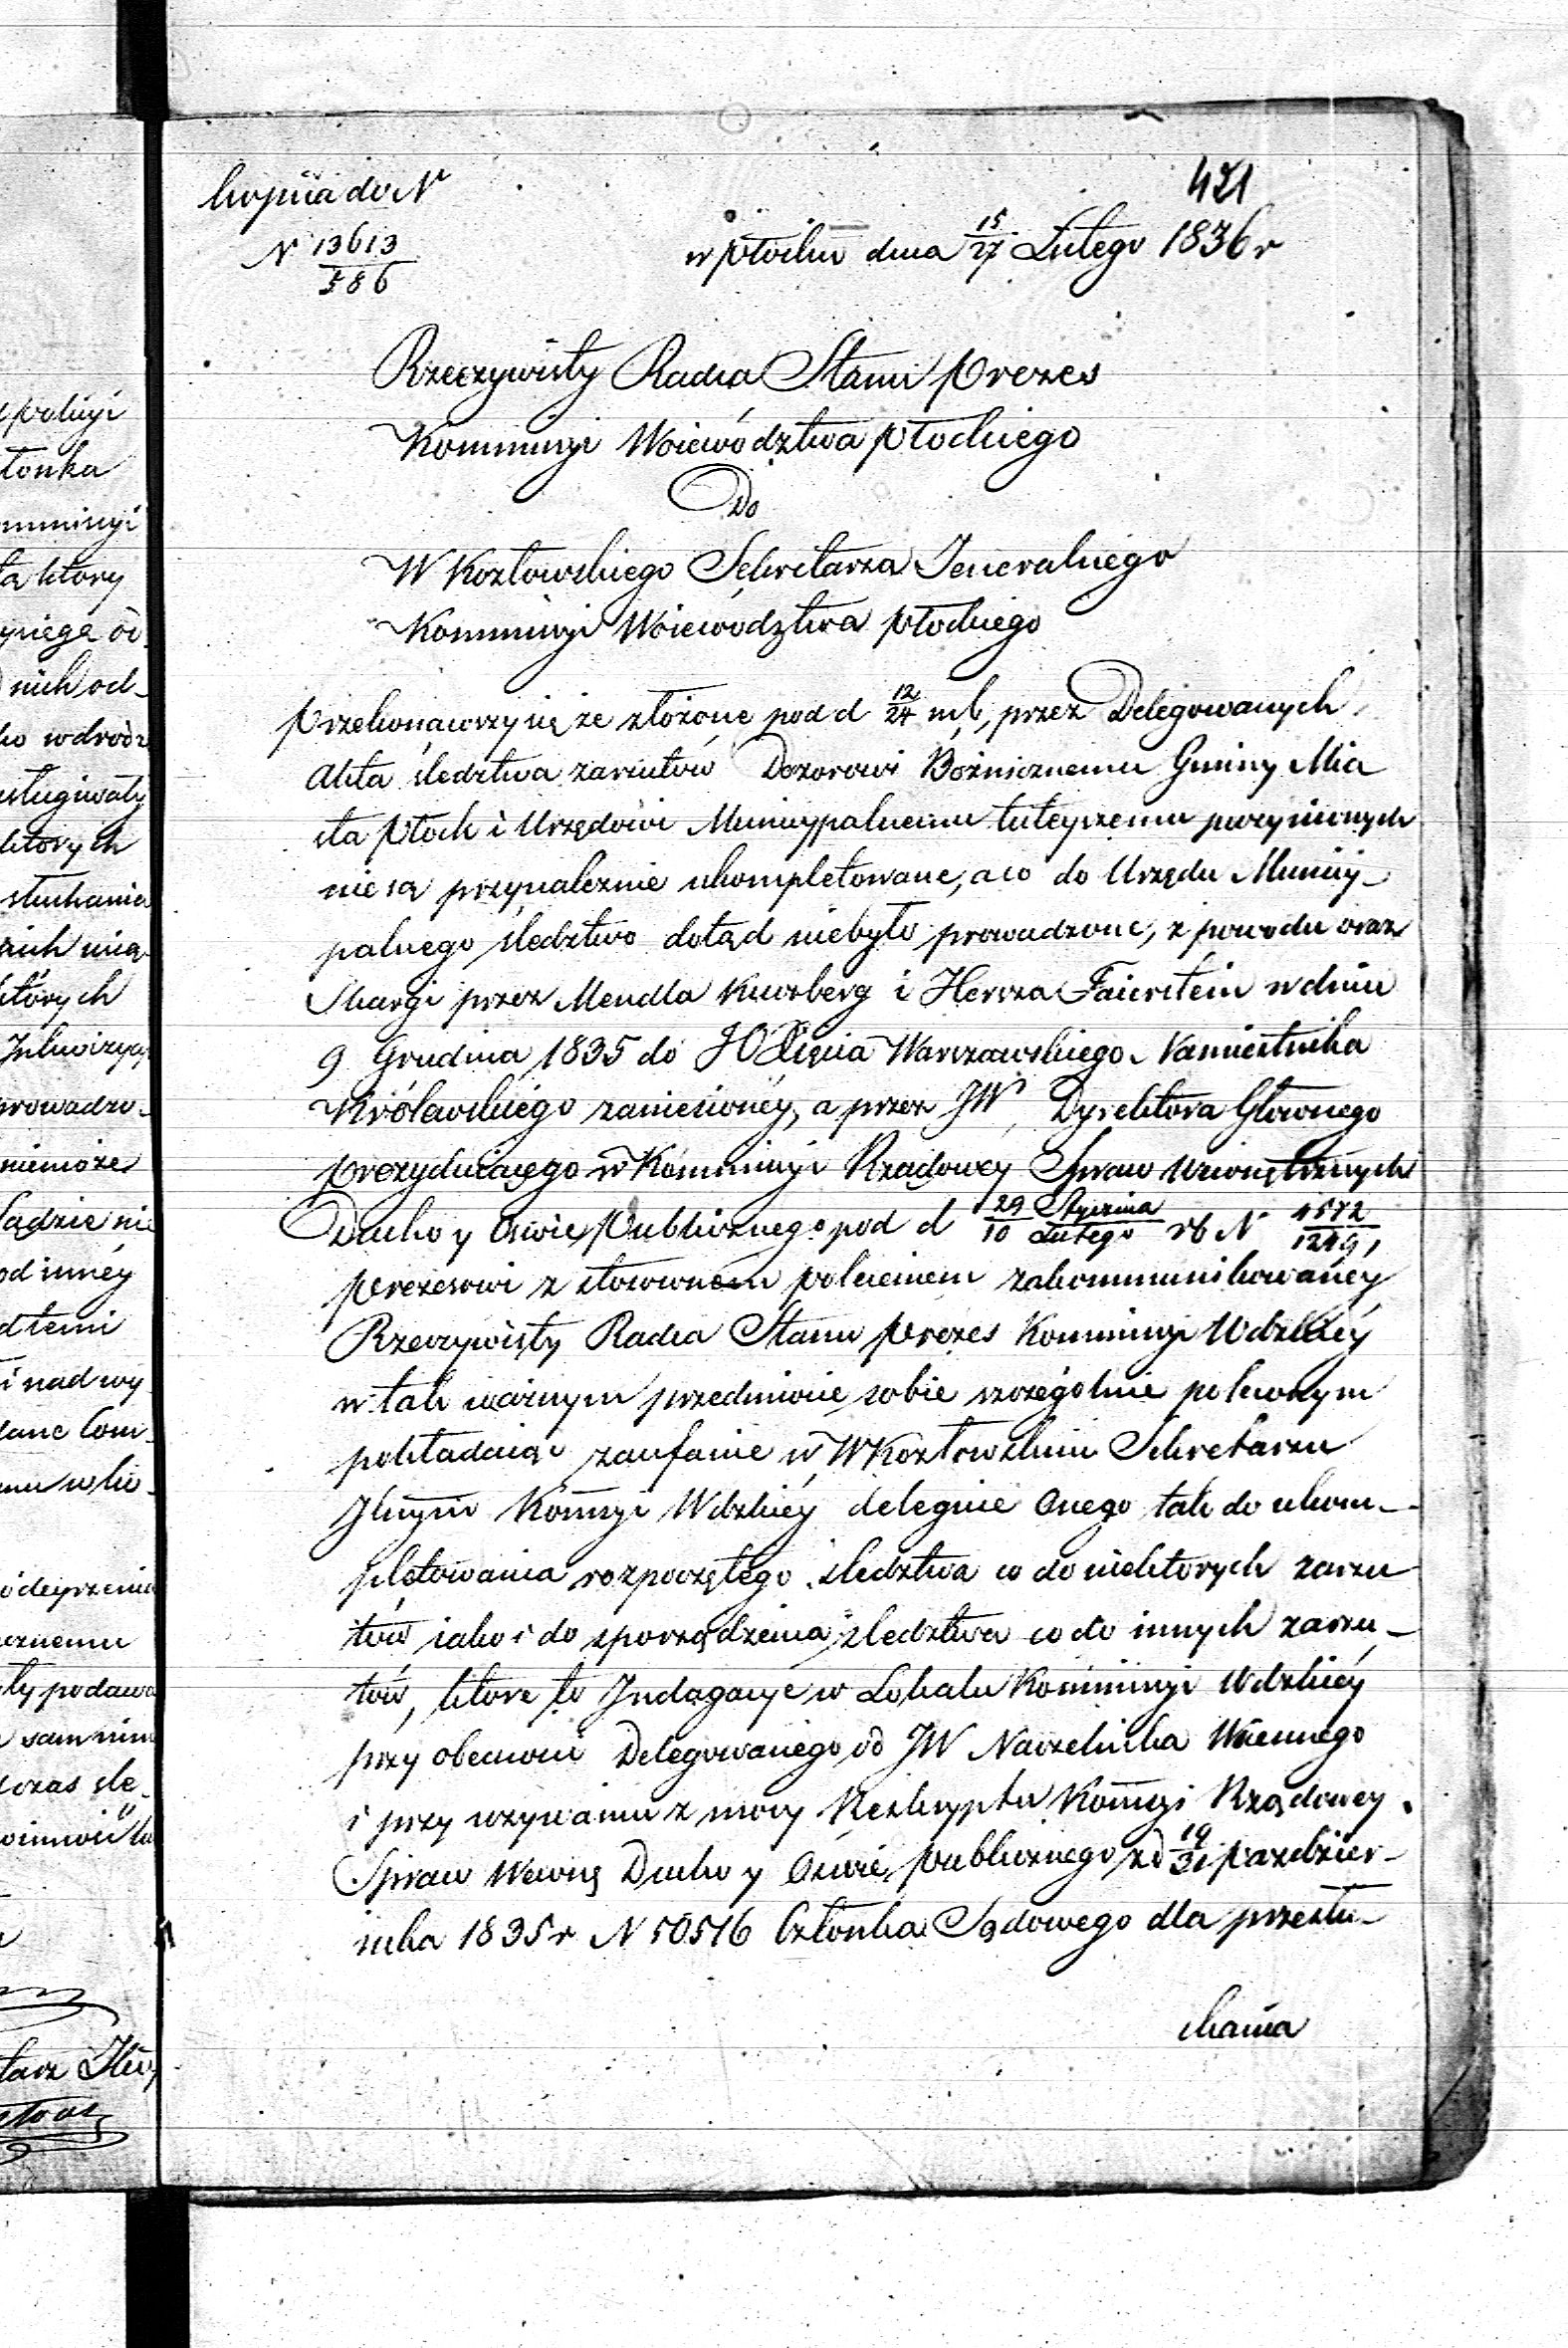 Kopiia do N
N 13613/586
421
w Płocku dnia 15/27 Lutego 1836 r
Rzeczywisty Radca Stanu Prezes
Kommissyi Woiewództwa Płockiego
Do
W Kozłowskiego Sekretarza Jeneralnego
Kommissyi Woiewództwa Płockiego
Przekonawszy się że złożone pod d 12/24 mb, przez Delegowanych
Akta śledztwa zarzutów Dozorowi Bożnicznemu Gminy Mia
sta Płock i Urzędowi Municypalnemu tuteyszemu poczynionych
nie są przynależnie ukompletowane, a co do Urzędu Municy-
palnego śledztwo dotąd niebyło prowadzone, z powodu oraz
Skargi przez Mendla Kurzberg i Hersza Faiersztein w dniu
9 Grudnia 1835 do JO Xięcia Warszawskiego Namiestnika
Królewskiego zaniesioney, a przez JW Dyrektora Głownego
Prezyduiącego w Kommissyi Rządowey Spraw Wewnętrznych
Ducho y Oświe Publicznego pod d 29 Stycznia/10 Lutego rb N 4572/12491
Prezesowi z stosownem poleceniem zakommunikowaney
Rzeczywisty Radca Stanu Prezes Kommissyi Wdzkiéy
w tak ważnym przedmiocie sobie szczególnie poleconym
pokładaiąc zaufanie w W Kozłowskim Sekretarzu
Jlnym Kommyi Wdzkiéy deleguie Onego tak do ukom-
pletowania rozpoczętego śledztwa co do niektorych zarzu
tów iako i do sporządzenia śledztwa co do innych zarzu-
tów, które to Jndagacye w Lokalu Kommissyi Wdzkiéy
przy obecności Delegowanego od JW Naczelnika Woiennego
i przy wzywaniu z mocy Reskryptu Kommyi Rządowey
Spraw Wewnę Ducho y Oświe Publicznego z d 19/31 Paździer-
nika 1835 r N 50516 Członka Sądowego dla przesłu-
chania